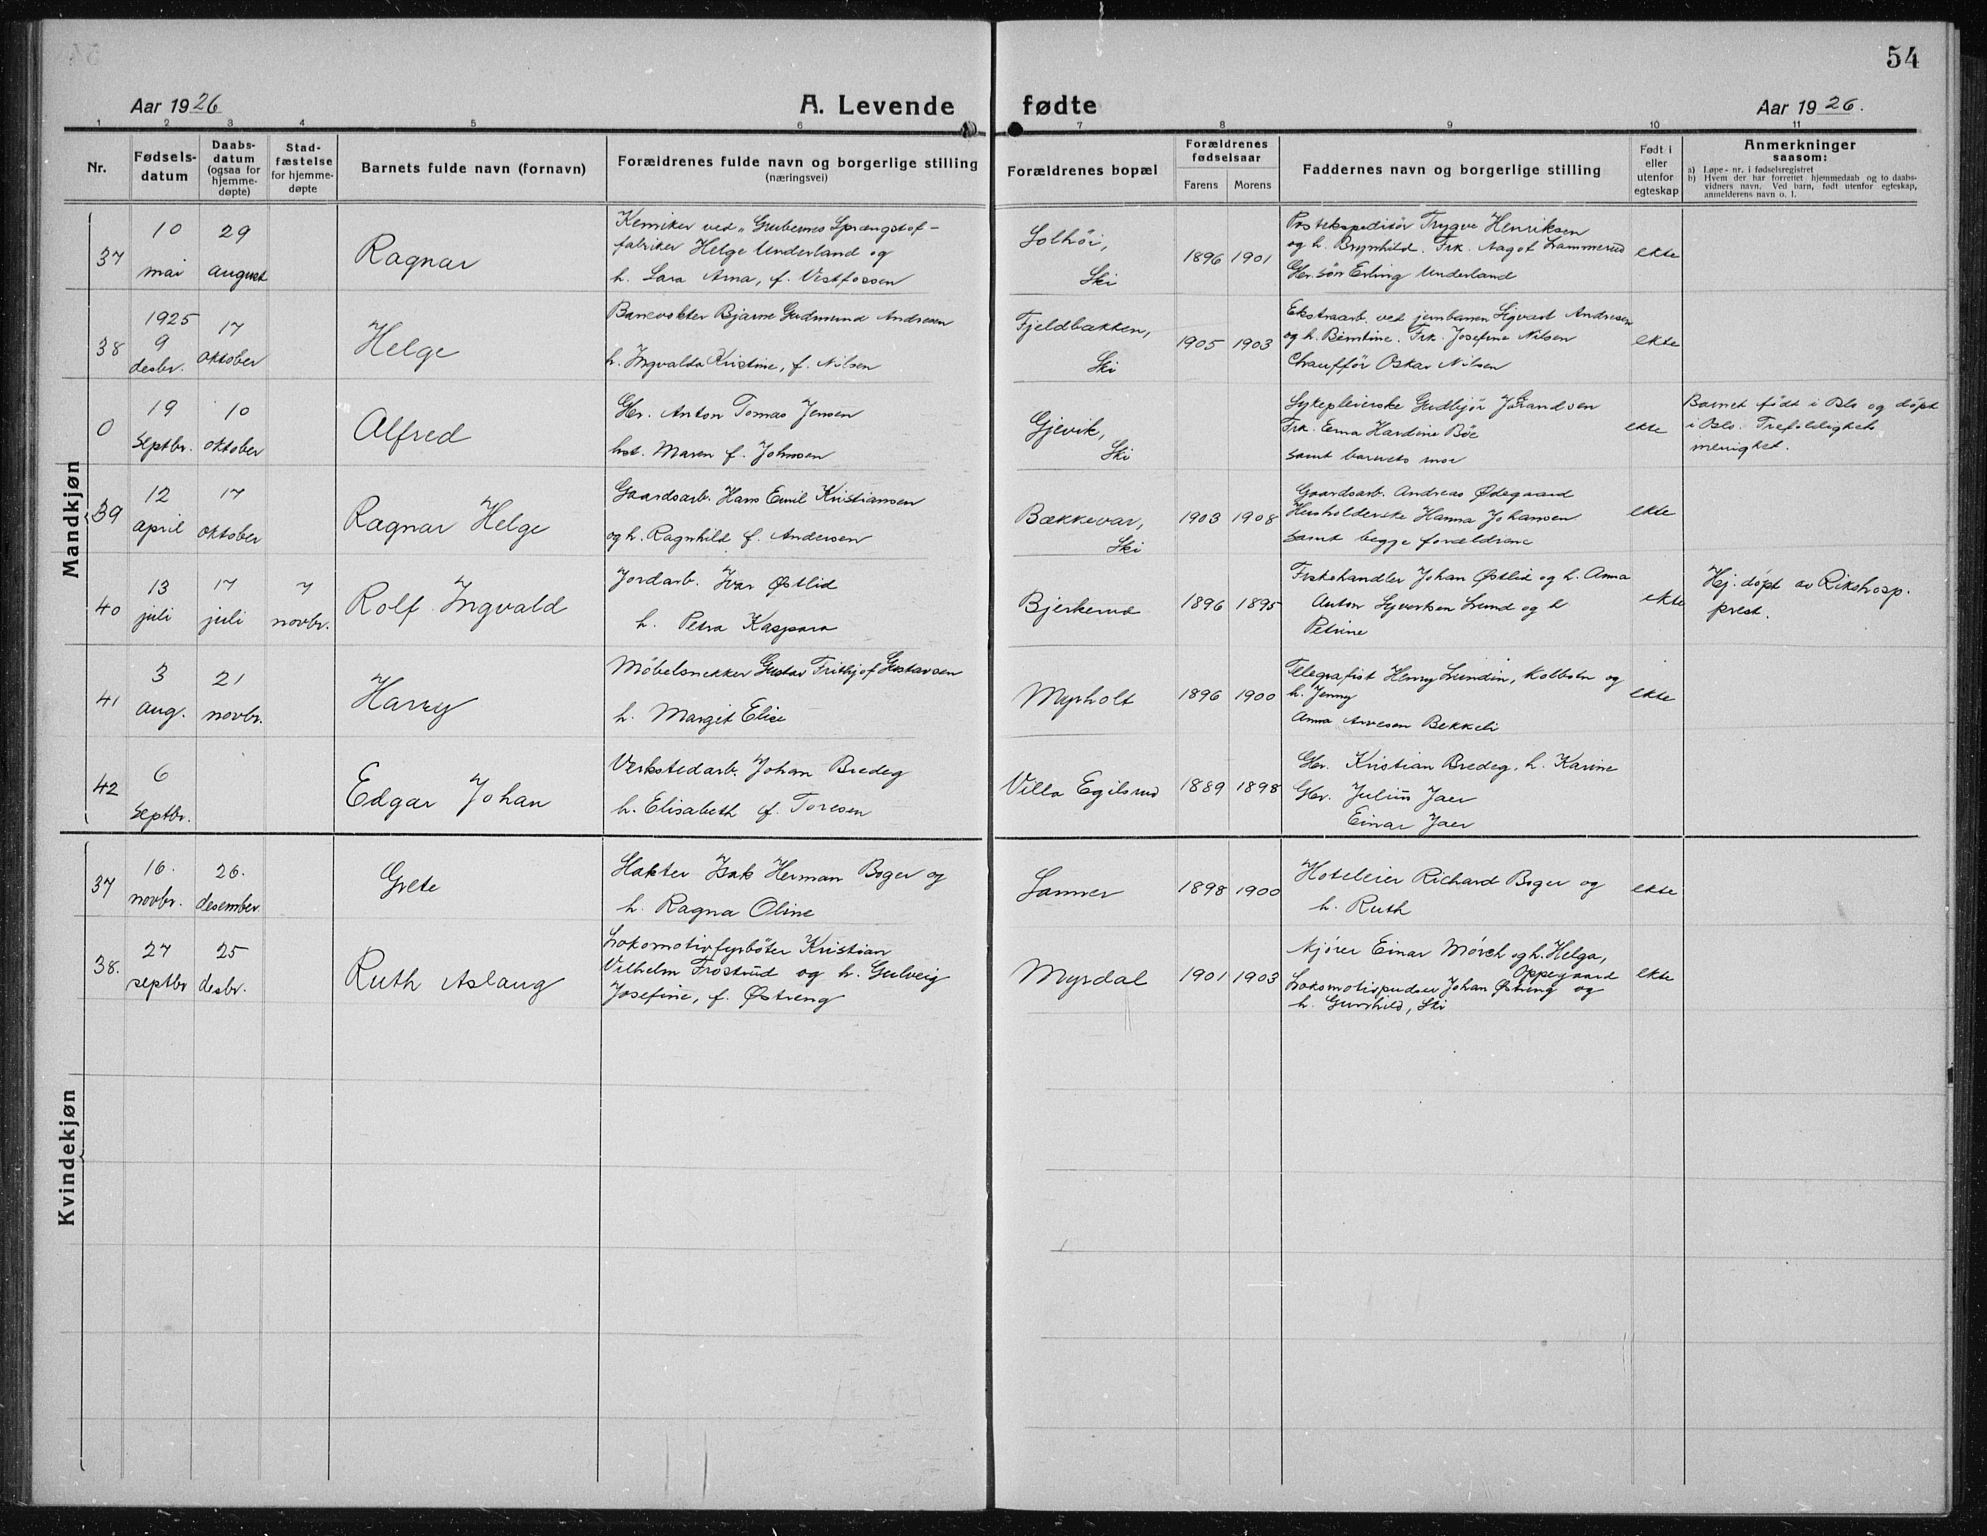 54
Aar 1926
A. Levende fødte
Aar 1926.
1 2 3 4 5 6 7 8 9 10 11
Nr.
Fødsels-
datum
Daabs-
datum
(ogsaa for
hjemme-
døpte)
Stad-
fæstelse
for hjemme-
døpte
Barnets fulde navn (fornavn)
Forældrenes fulde navn og borgerlige stilling
(næringsvei)
Forældrenes bopæl
Forældrenes
fødselsaar
Farens Morens
Faddernes navn og borgerlige stilling
Født i
eller
utenfor
egteskap
Anmerkninger
saasom:
a) Løpe-nr. i fødselsregistret
b) Hvem der har forrettet hjemmedaab og to daabs-
vidners navn. Ved barn, født utenfor egteskap,
anmelderens navn o. l.
Mandkjøn
37
10
mai
29
august
Ragnar
Kemiker ved "Grubernes Sprængstof-
fabriker Helge Underland og
h. Sara Arna, f. Vestfossen
Solhöi,
Ski
1896 1901
Postekspeditör Trygve Henriksen
og h. Brynhild. Frk. Aagot Lammerud
Gbr. sön Erling Underland
ekte
38
1925
9
desbr.
17
oktober
Helge
Banevokter Bjarne Gudmund Andresen
h. Ingvalda Kristine, f. Nilsen
Fjeldbækken,
Ski
1905 1903
Ekstraarb. ved jernbanen Sigvart Andresen
og h. Berntine. Frk. Josefine Nilsen
Chauffør Oskar Nilsen
ekte
0
19
Septbr.
10
oktober
Alfred
Gbr. Anton Tomas Jensen
hst. Maren f. Johnsen
Gjevik,
Ski
Sykepleierske Gudbjör
Frk. Erna Hardine Böe
samt barnets mor
ekte
Barnet født i Oslo og döpt
i Oslo. Trefoldighets
menighet.
39
12
april
17
oktober
Ragnar Helge
Gaardsarb. Hans Emil Kristiansen
og h. Ragnhild f. Andersen
Bækkevar,
Ski
1903 1908
Gaardsarb. Andreas Ødegaard
Husholderske Hanna Johansen
samt begge forældrene
ekte
40
13
juli
17
juli
7
novbr.
Rolf Ingvald
Jordarb. Ivar Østlid
h. Petra Kaspara
Bjerkerud
1896 1895
Fiskehandler Johan Østlid og h. Anna
Anton Syvertsen Lund og h
Petrine
ekte
Hj. döpt av Rikshosp.
prest.
41
3
aug.
21
novbr.
Harry
Møbelsnekker Gustav Frithjof Gustavsen
h. Margit Elise
Myrholt
1896 1900
Telegrafist Henry Lundin, Kolbotn og
h. Jenny
Anna Arvesen Bekkeli
ekte
42
6
Septbr.
Edgar Johan
Verkstedarb. Johan Bredeg
h. Elisabeth f. Toresen
Villa Egilsrud
1889 1898
Gbr. Kristian Bredeg, h. Karine
Gbr. Julius Jaer
Einar Jaer
Kvindekjøn
37
16.
novbr.
26.
desember
Grete
Isak Herman Boger og
h. Ragna Oline
Sanner
1898 1900
Hoteleier Richard Boger og
h. Ruth
ekte
38.
27
septbr
25
desbr.
Ruth Aslaug
Lokomotivfyrböter Kristian
Vilhelm Frostrud og h. Gulveig
Josefine, f. Østreng
Myrdal
1901 1903
Kjører Einar Mörch og h. Helga,
Oppegaard
Lokomotivpudser Johan Østreng og
h. Gunhild, Ski
ekte